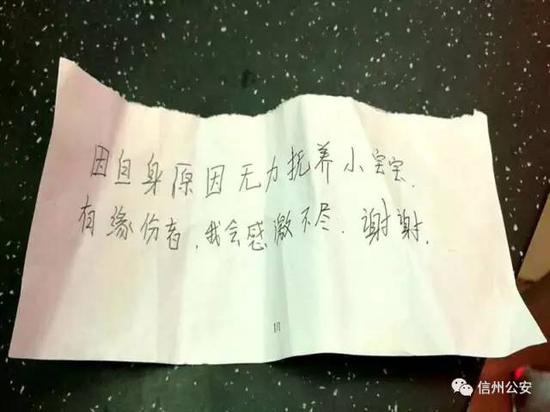 因自身原因无力抚养小宝宝.
有缘份者,我会感激不尽.谢谢.
信州公安